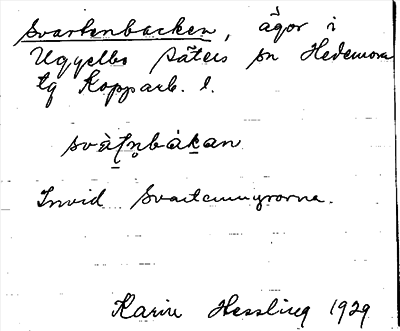 Svartenbacken, ägor i
Uggelbo Säters sn Hedemora
tg Kopparb. l.
svàʈn̥bákan
Invid Svartemyrorna.
Karin Hessling 1929